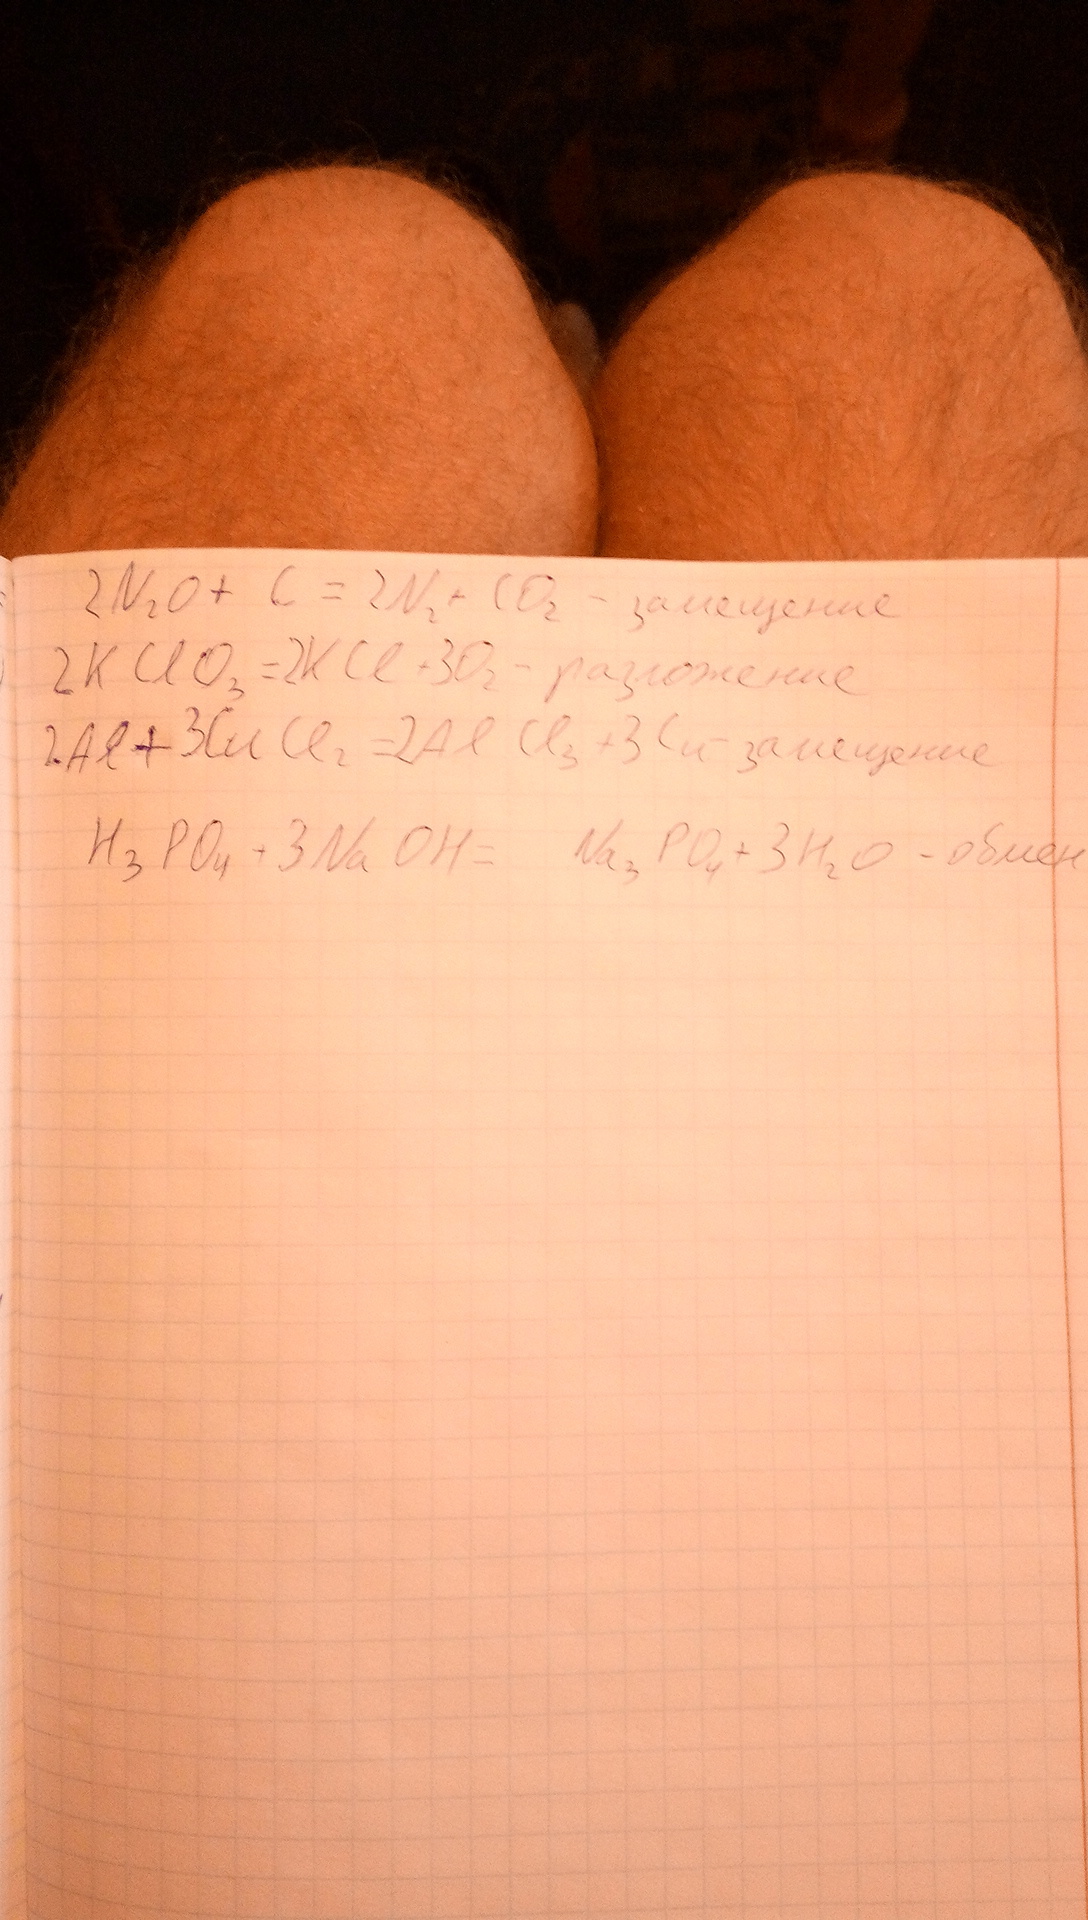 2N₂O + C = 2N₂ + CO₂ - замещение
2KClO₃ = 2KCl + 3O₂ - разложение
2Al + 3CuCl₂ = 2AlCl₃ + 3Cu - замещение
H₃PO₄ + 3NaOH = Na₃PO₄ + 3H₂O - обмен